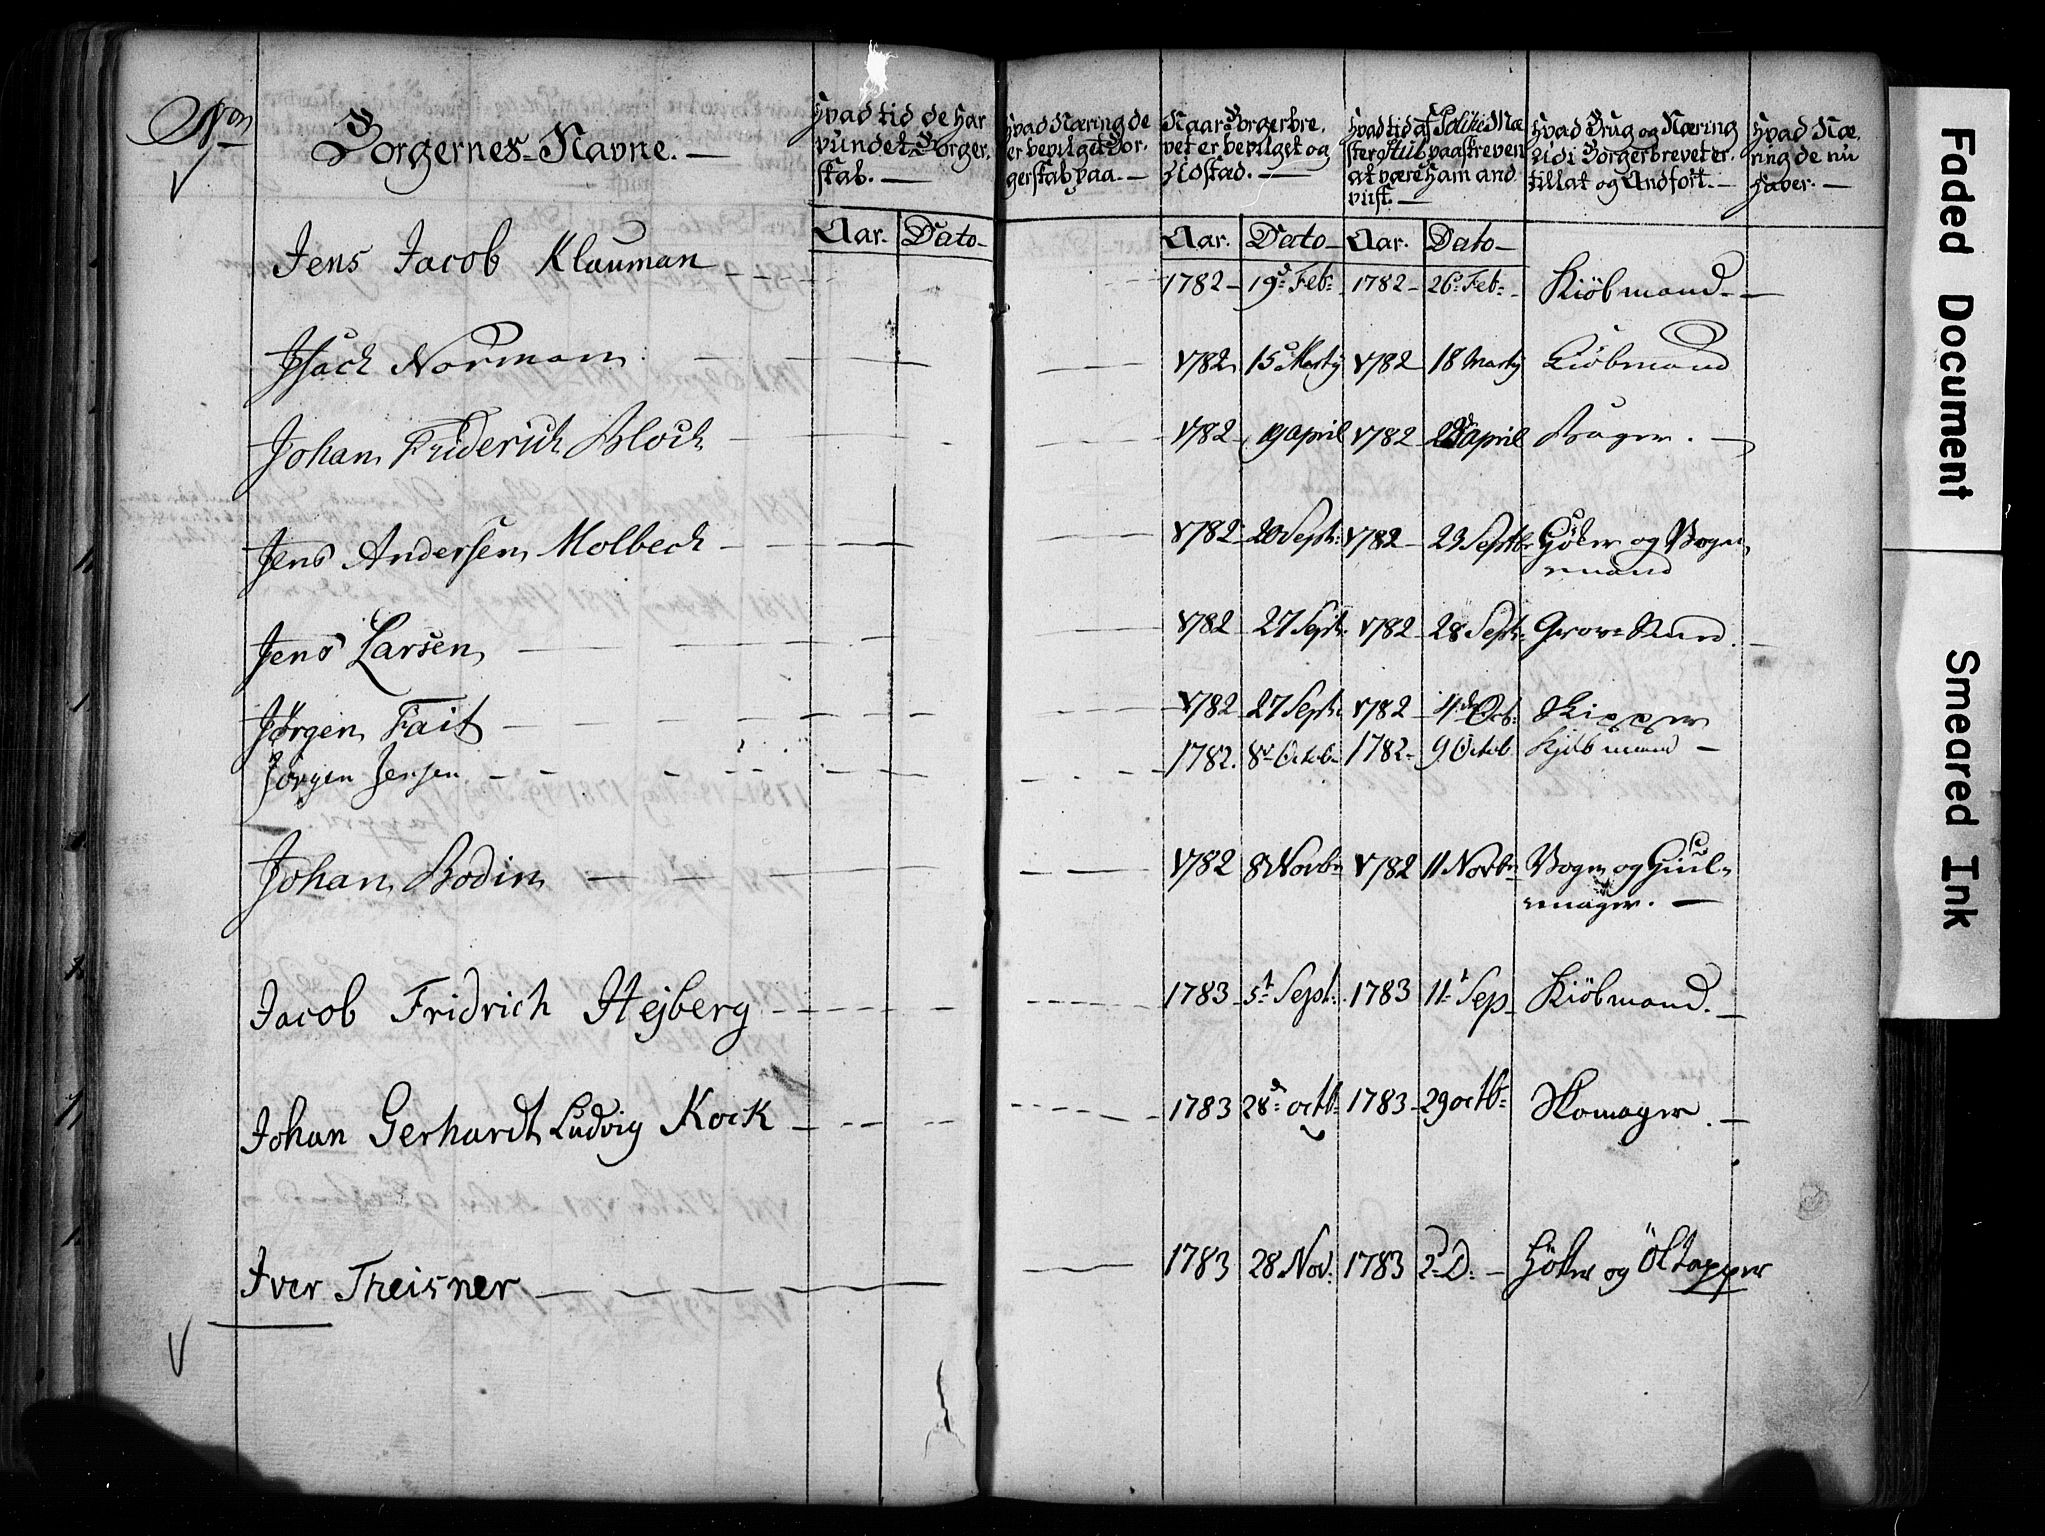 No
Borgernes Navne. —
Hvad tid de har
vundet Borger,
skab. —
Hvad Næring de
er bevilget Bor,
gerskab paa. —
Naar Borgerbre,
vet er bevilget og
Udstæd. —
Hvad tid af Politie Mæ
ster
paaskreven
at være Ham and
viist. —
Hvad Brug og Næring
udi Borgerbrevet er
tillat og Andført. —
Hvad Næ,
ring de nu
haver. —
Aar. Dato Aar. Dato Aar. Dato
Jens Jacob Klauman 1782 19d Feb: 1782 26d Feb: Kiöbmand.
Isach Norman 1782 15 Martÿ 1782 18 Martÿ Kiöbmand
Johan Friderich Bloch 1782 19 april 1782 april Bager.
Jens Andersen Molbech 1782 20 Sept: 1782 23 Septbr Höker og Vogn
mand
Jens Larsen 1782 27 Sept: 1782 28 Sept: Grov Smed.
Jørgen Fait 1782 27 Sept: 1782 4de Octb: Skipper
Jörgen Jensen 1782. 8de Octob 1782 9 Octob Kjöbmand —
Johan Bodin 1782 8 Novbr 1782 11 Novbr Vogn og Hiul
mager. —
Jacob Fridrich Hejberg 1783 5t Sept: 1783 11t Sep Kiöbmand.
Johan Gerhardt Ludvig Kock 1783 28d octb: 1783 29 octb: Skomager.
Iver Theisner 1783 28 Nov: 1783 2d D: Höker og Öltapper
Faded Document
Smeared Ink